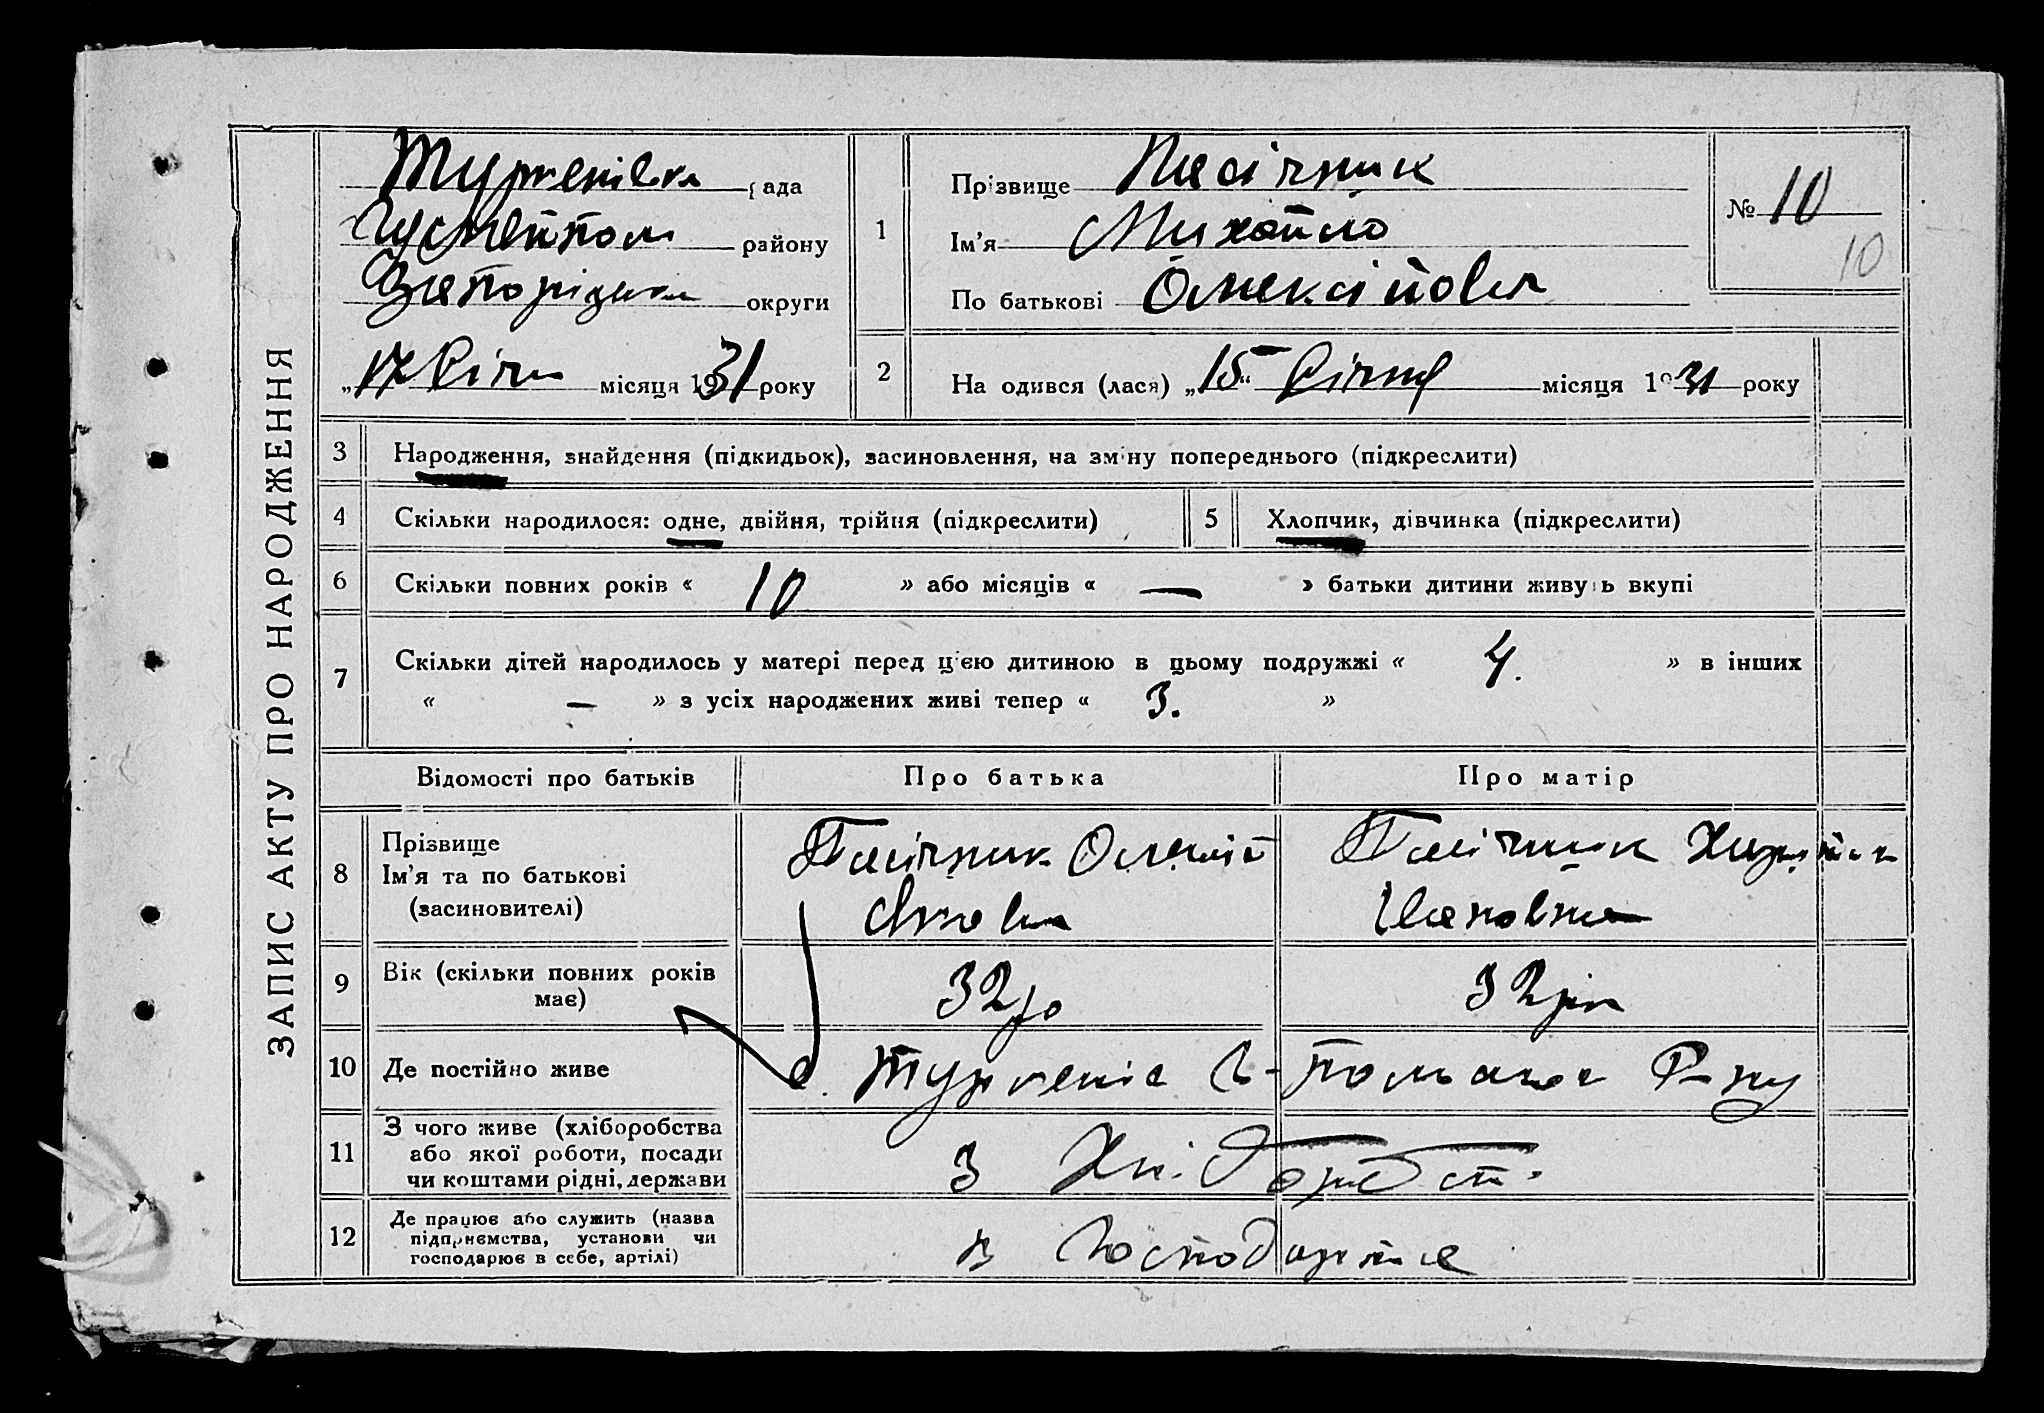 ЗАПИС АКТУ ПРО НАРОДЖЕННЯ
рада
району
округи
„17 Січн місяця 1931 року
1 Прізвище Пасічник
Ім'я Михайло
По батькові Олексійов
№ 10
10
2 На одився (лася) „15“ Січня місяця 1931 року
3 Народження, знайдення (підкидьок), засиновлення, на зміну попереднього (підкреслити)
4 Скільки народилося: одне, двійня, трійня (підкреслити)
5 Хлопчик, дівчинка (підкреслити)
6 Скільки повних років « 10 » або місяців « — » батьки дитини живуть вкупі
7 Скільки дітей народилось у матері перед цією дитиною в цьому подружжі « 4. » в інших
« — » з усіх народжених живі тепер « 3. »
Відомості про батьків Про батька Про матір
8 Прізвище
Ім'я та по батькові
(засиновителі)
Пасічник Олексій
Пасічник
Ивановна
9 Вік (скільки повних років
має)
32
32
10 Де постійно живе
11 З чого живе (хліборобства
або якої роботи, посади
чи коштами рідні, держави
З Хліборобст
12 Де працює або служить (назва
підприємства, установи чи
господарює в себе, артілі)